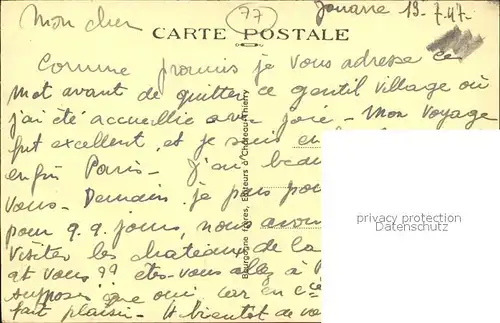 Mon cher
77
Jouarre 13-7-47.
CARTE POSTALE
Comme promis je vous adresse ce
mot avant de quitter ce gentil village où
j'ai été accueillie avec joie - Mon voyage
fut excellent, et je suis
enfin Paris - J'ai
vous - Demain je pars
pour q.q. jours, nous avons
visiter les chateaux de la
et vous ?? êtes-vous allez à
suppose que oui, car
fait plaisir - A bientot de
Bourgogne Frères, Editeurs à Château-Thierry
privacy protection
Datenschutz